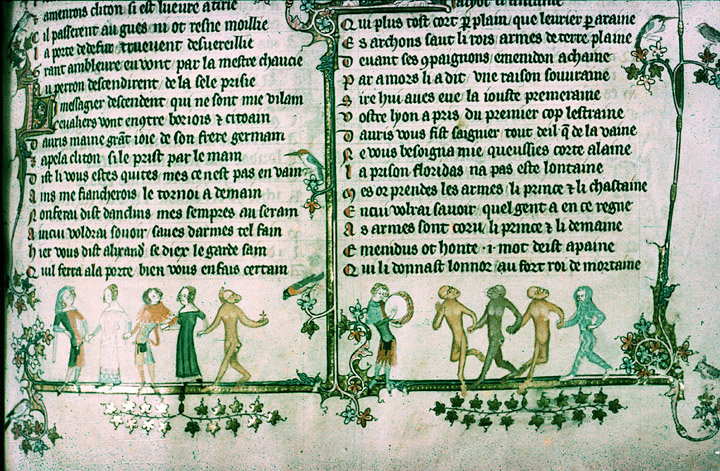 amenrois cliton si est lueure a tirie
C il passerent au gues ni ot resne moillie
a porte de defur trueuent desuereillie
G rant ambleure en vont par la mestre chaucie
u perron descendirent de la sele prisie
messagier descendent qui ne sont mie vilain
cheualiers vont borjois ⁊ citoain
D auris maine grant ioie de son frere germain
apela cliton si le prist par le main
D ist li vous estes quites mes ce nest pas en vain
A ins me fiancherois le tornoi a demain
N on fera dist danclins mes sempres au serain
A incui voldrai sauoir saues darmes tel fain
h ier vous dist alixand se diex le garde sain
Q uil sera a la porte bien vous en fais certain
Q ui plus tost cort p plain que leurier p araine
E s archons saut li rois armes de terre plaine
D euant ses 9paignons emenidon achaine
P ar amors li a dit vne raison souuraine
S ire hui aues eue la iouste premeraine
V ostre lyon a pris du premier cop lestraine
D auris vous fist saignier tout deil q de la vaine
N e vous besoigna mie queussies corte alaine
L a prison floridas na pas este lontaine
M es or prendes les armes li prince ⁊ li chastaine
E ncui volrai sauoir quel gent a en ce regne
A s armes sont coru li prince ⁊ li demaine
E menidus ot honte .i. mot deist a paine
Q ui li donnast lonnor au fort roi de mortaine